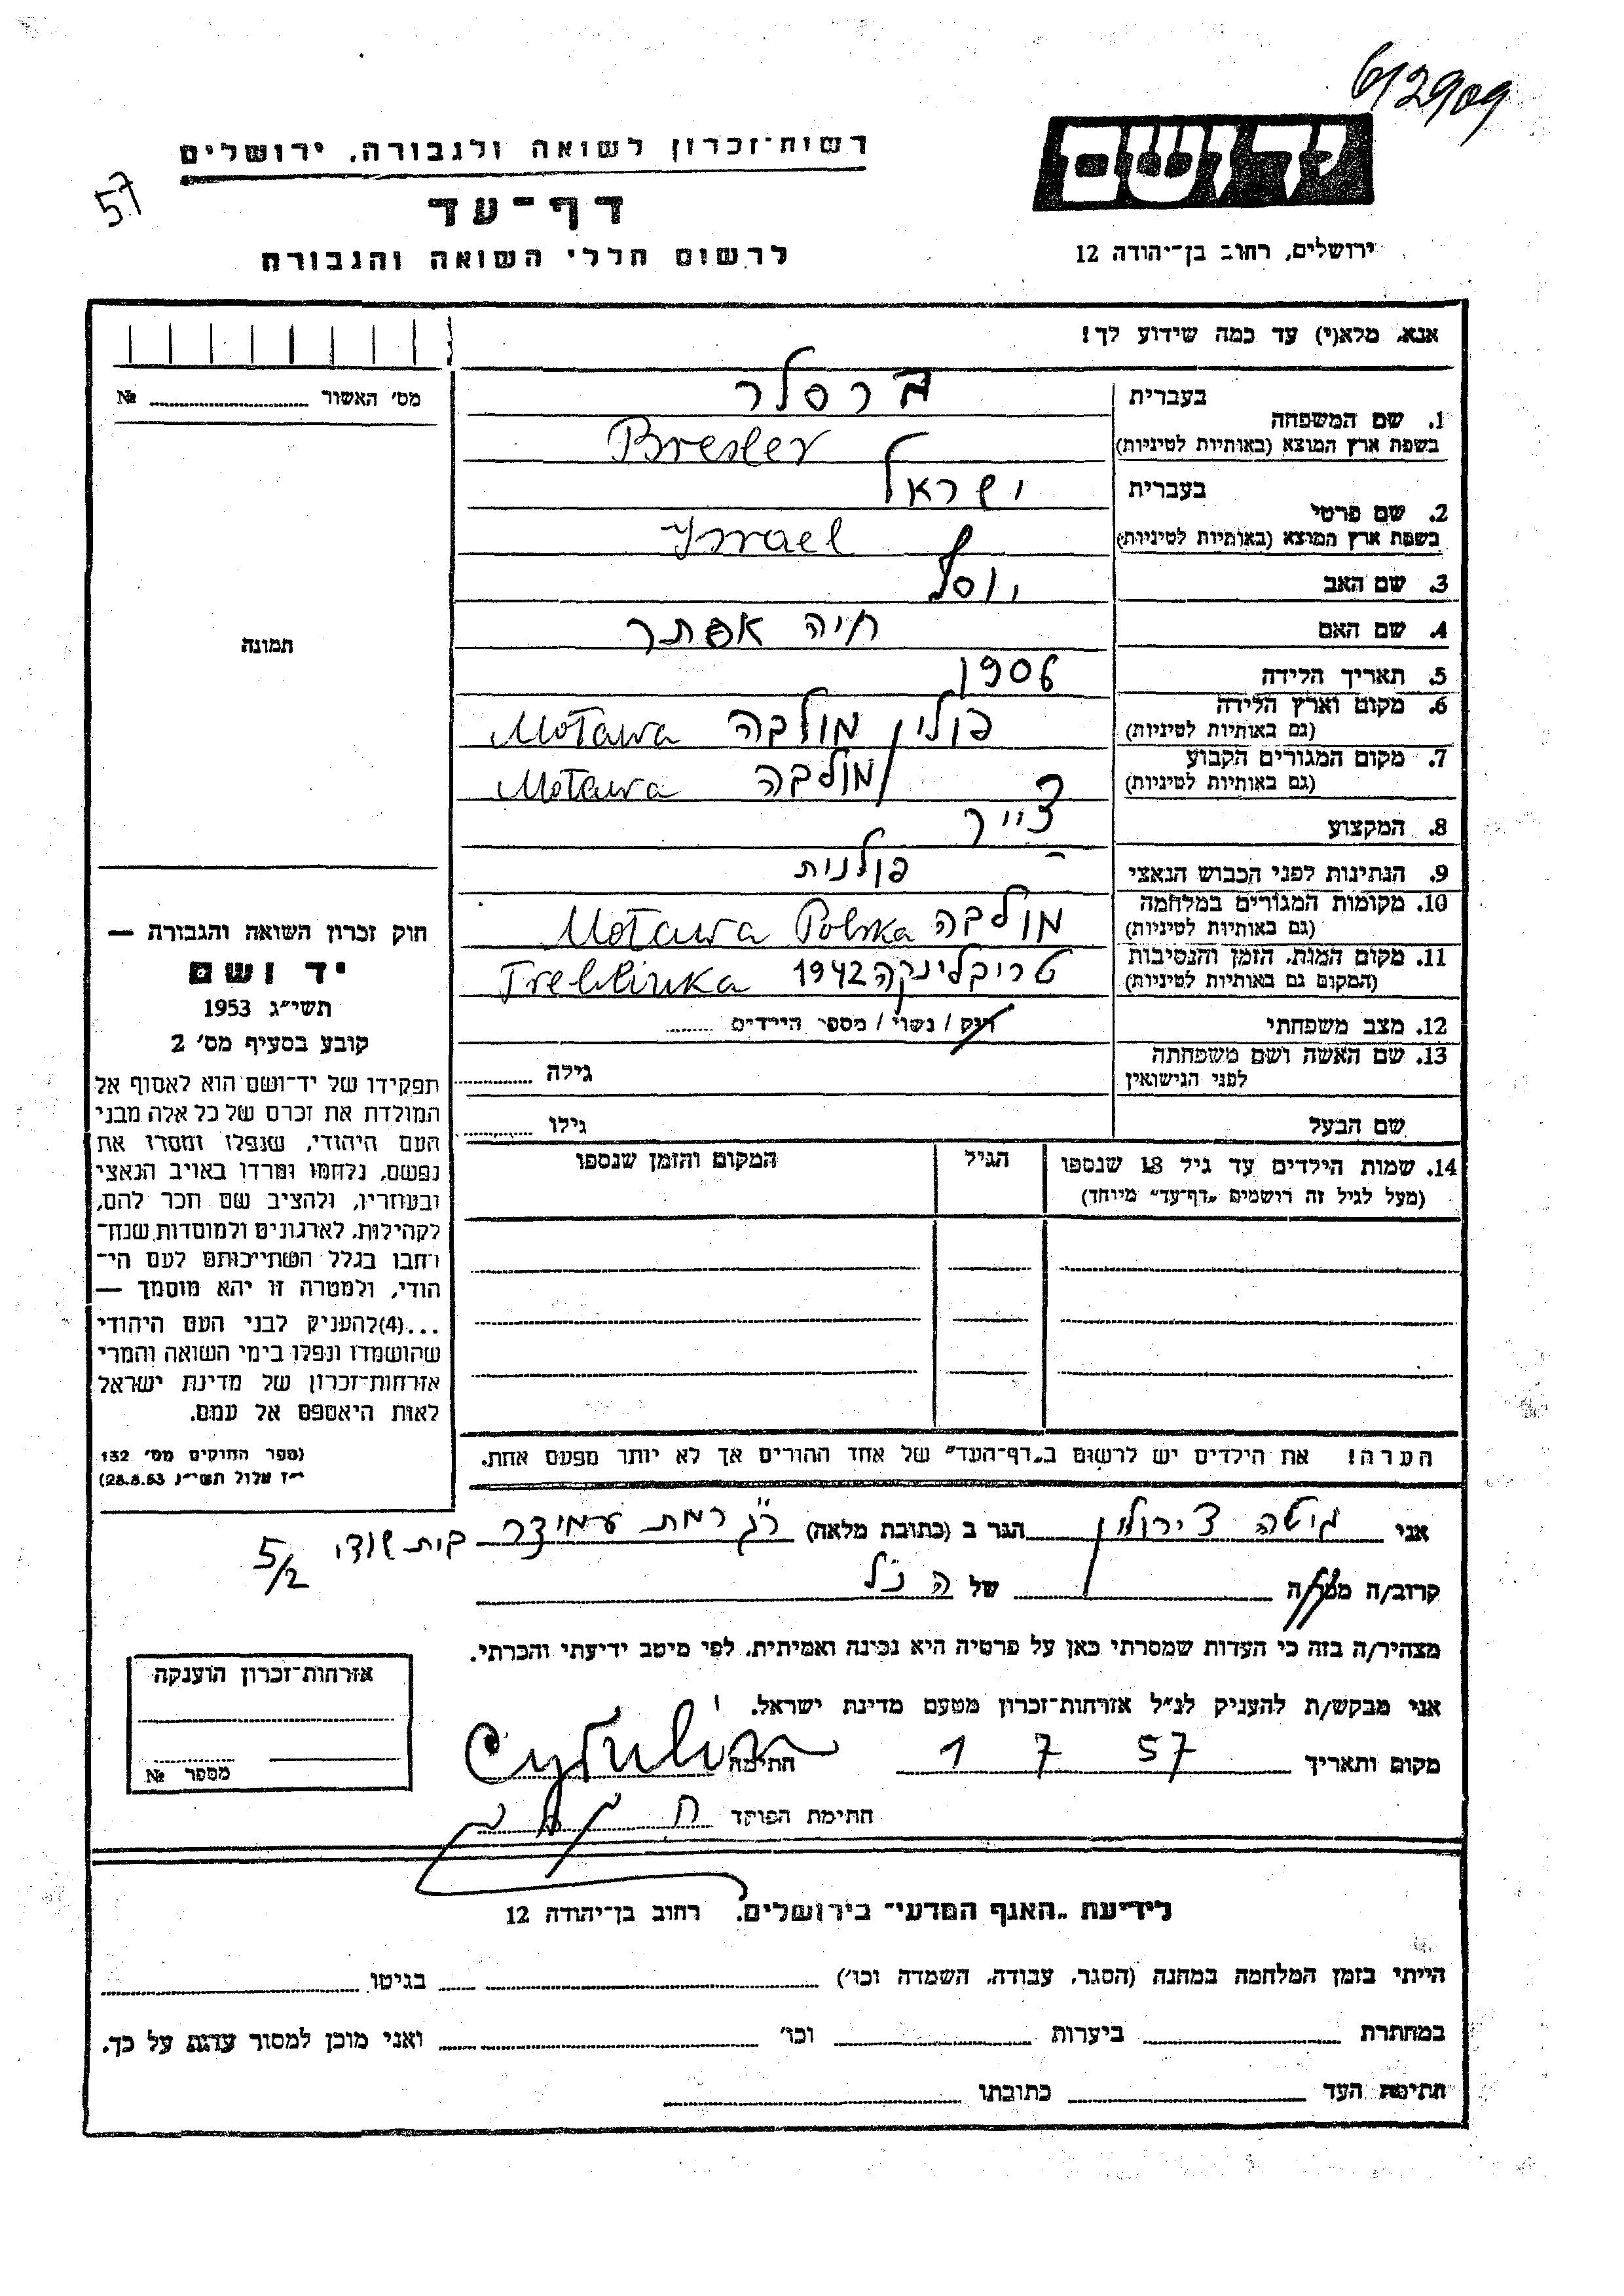 612909
רשות־זכרון לשואה ולגבורה, ירושלים
57
דף־עד
לרשום חללי השואה והגבורה
יד ושם
ירושלים, רחוב בן־יהודה 12
אנא, מלא(י) עד כמה שידוע לך!
מס' האשור № 
1. שם המשפחה בעברית ברסלר
בשפת ארץ המוצא (באותיות לטיניות) Bresler
2. שם פרטי בעברית ישראל
בשפת ארץ המוצא (באותיות לטיניות) Israel
3. שם האב יוסף
4. שם האם חיה אסתר
5. תאריך הלידה 1906
6. מקום וארץ הלידה (גם באותיות לטיניות) פולין מולבה Motawa
7. מקום המגורים הקבוע (גם באותיות לטיניות) מולבה Motawa
8. המקצוע צייר
9. הנתינות לפני הכבוש הנאצי פולנית
10. מקומות המגורים במלחמה (גם באותיות לטיניות) מולבה Motawa Polska
11. מקום המות, הזמן והנסיבות (המקום גם באותיות לטיניות) טריבלינקה 1942 Treblinka
12. מצב משפחתי רוק / נשוי / מספר הילדים
13. שם האשה ושם משפחתה לפני הנישואין גילה
שם הבעל גילו
14. שמות הילדים עד גיל 18 שנספו הגיל המקום והזמן שנספו
(מעל לגיל זה רושמים "דף־עד" מיוחד)
הערה! את הילדים יש לרשום ב"דף־העד" של אחד ההורים אך לא יותר מפעם אחת.
תמונה
חוק זכרון השואה והגבורה —
יד ושם
תשי"ג 1953
קובע בסעיף מס' 2
תפקידו של יד־ושם הוא לאסוף אל
המולדת את זכרם של כל אלה מבני
העם היהודי, שנפלו ומסרו את
נפשם, נלחמו ומרדו באויב הנאצי
ובעוזריו, ולהציב שם וזכר להם,
לקהילות, לארגונים ולמוסדות שנח־
רבו בגלל השתייכותם לעם הי־
הודי, ולמטרה זו יהא מוסמך —
...(4)להעניק לבני העם היהודי
שהושמדו ונפלו בימי השואה והמרי
אזרחות־זכרון של מדינת ישראל
לאות היאספם אל עמם.
(ספר החוקים מס' 132
י"ז אלול תשי"ג 28.8.53)
אני גיטה צירולין הגר ב (כתובת מלאה) ר"ג רמת עמידר 5/2
קרוב/ה מכר/ה של הנ"ל
מצהיר/ה בזה כי העדות שמסרתי כאן על פרטיה היא נכונה ואמיתית, לפי מיטב ידיעתי והכרתי.
אני מבקש/ת להעניק לנ"ל אזרחות־זכרון מטעם מדינת ישראל.
מקום ותאריך 1 7 57 חתימה
חתימת הפוקד
אזרחות־זכרון הוענקה
מספר №
לידיעת "האגף המדעי" בירושלים, רחוב בן־יהודה 12
הייתי בזמן המלחמה במחנה (הסגר, עבודה, השמדה וכו') בגיטו
במחתרת ביערות וכו' ואני מוכן למסור עדות על כך.
חתימת העד כתובתו